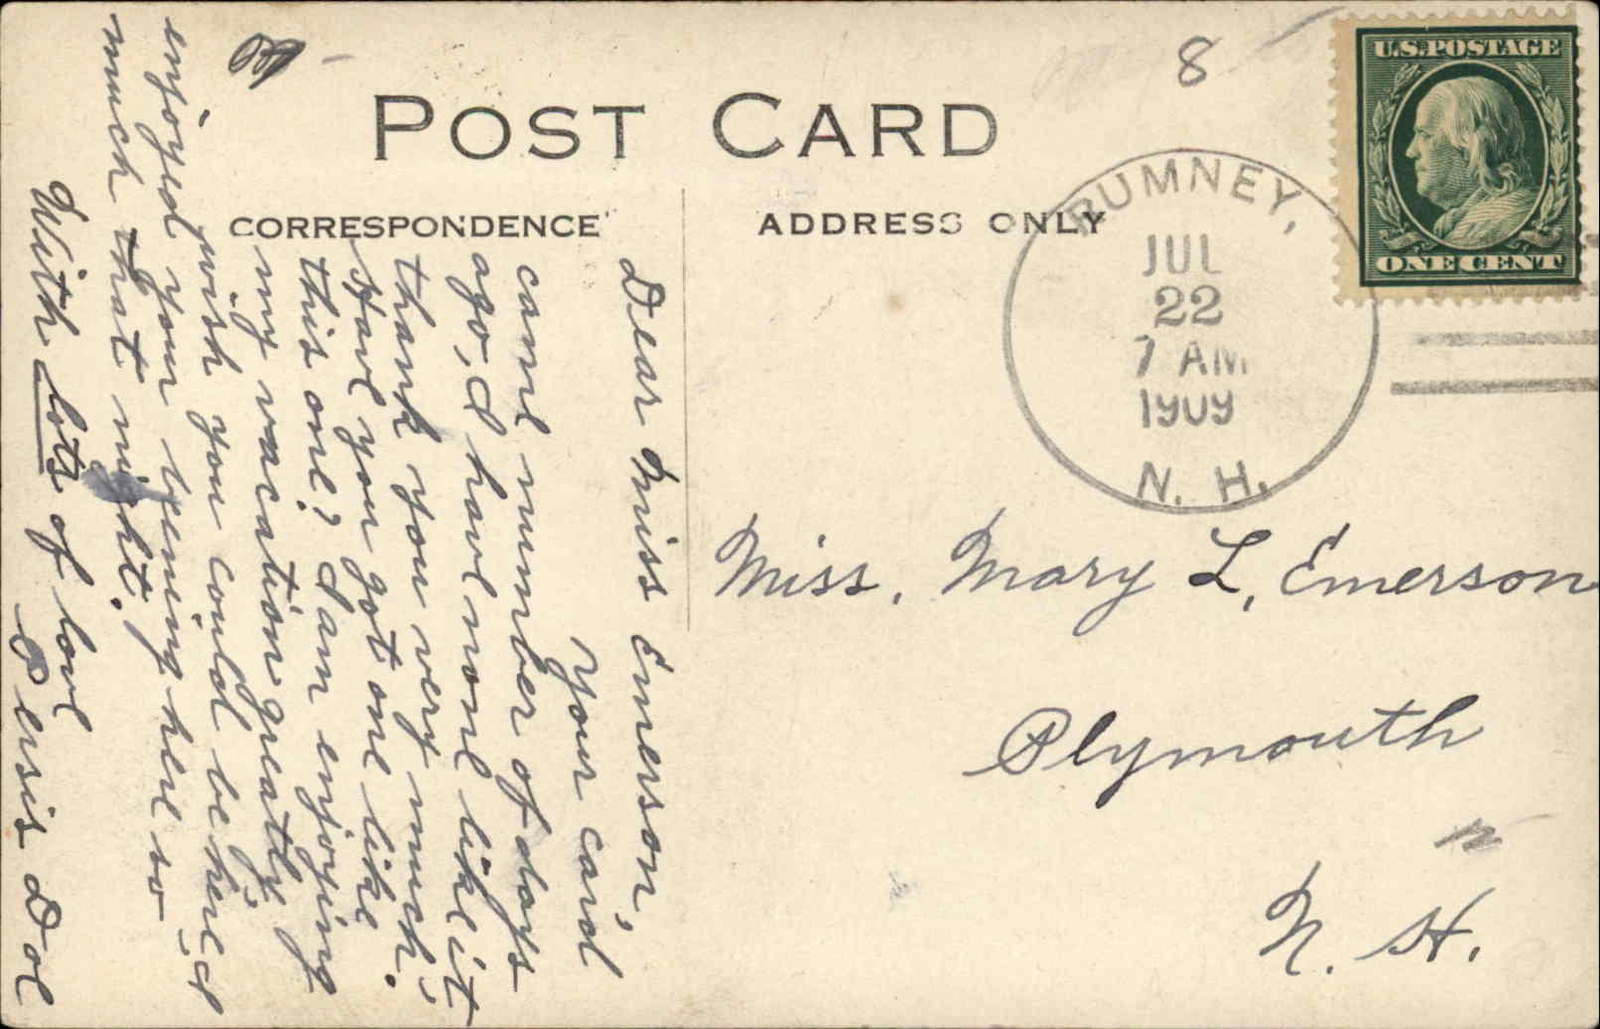 POST CARD
CORRESPONDENCE
ADDRESS ONLY
8
U.S. POSTAGE
ONE CENT
RUMNEY,
JUL
22
7 AM
1909
N. H.
Miss. Mary L. Emerson
Plymouth
N. H.
Dear Miss Emerson,
Your card
came number of days
ago, I have none like it
thank you very much.
Have you got one like
this one? I am enjoying
my vacation greatly
wish you could be here I
enjoyed your being here so
much that night.
With lots of love
Persis Dol